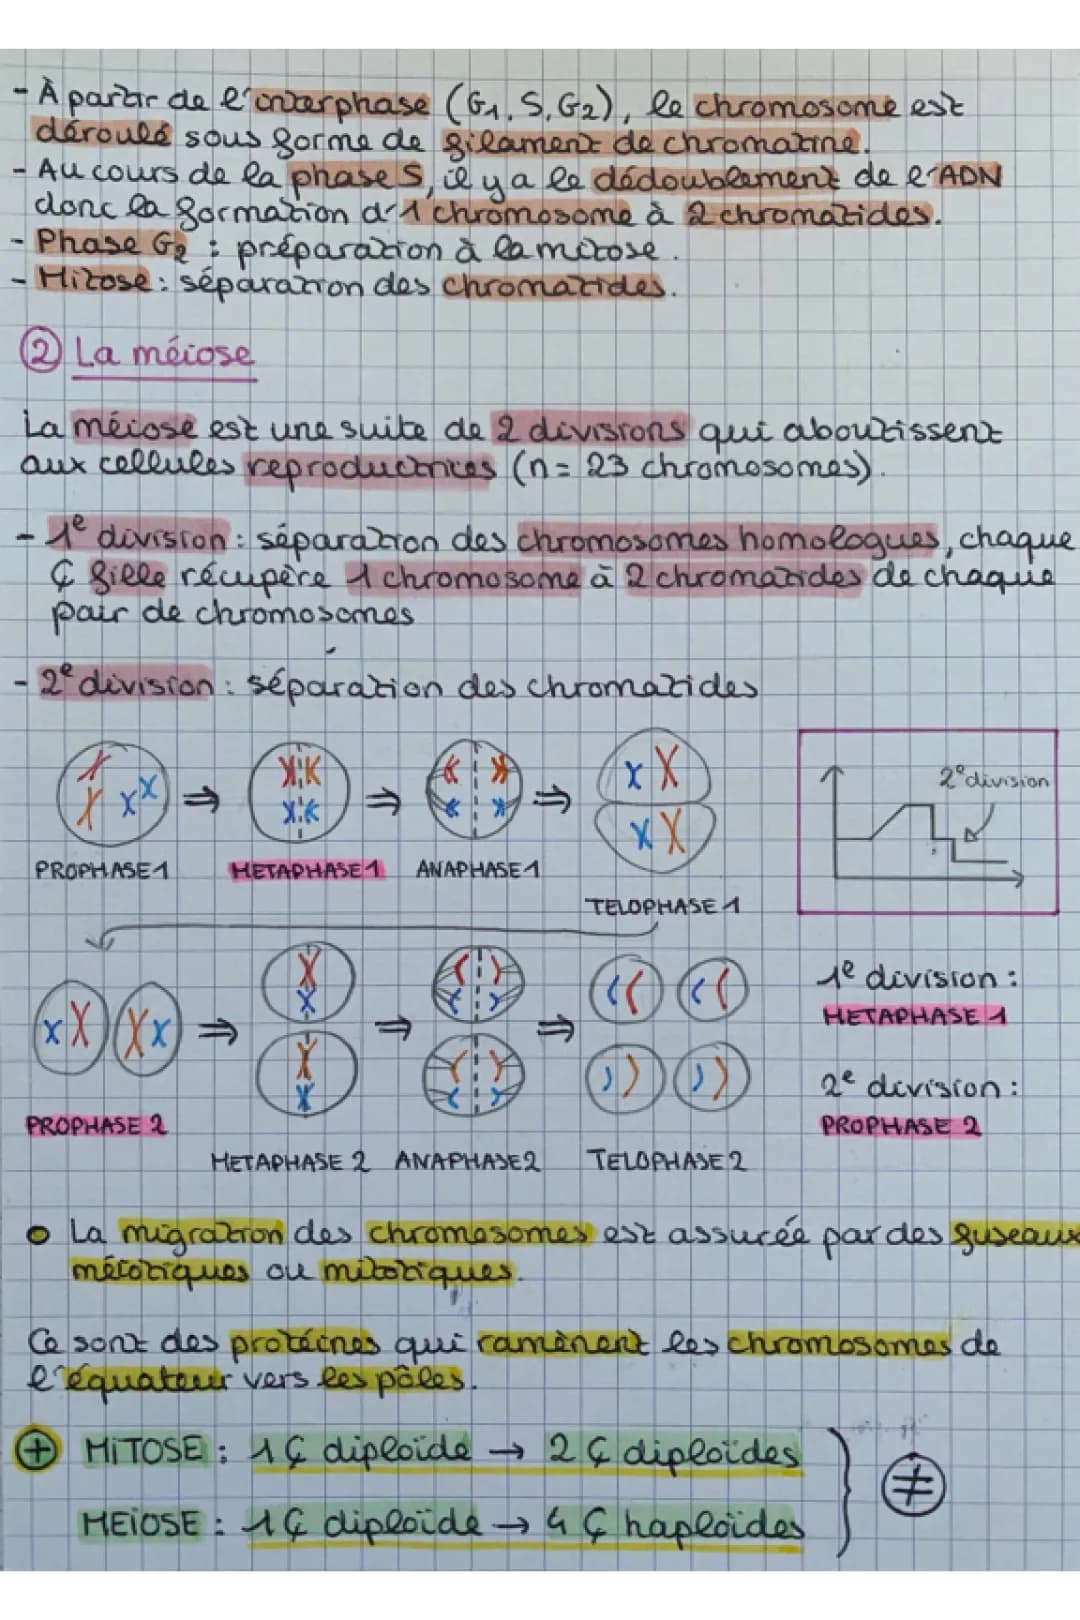 - À partir de l'interphase (G1, S, G2), le chromosome est
déroulé sous forme de filament de chromatine.
- Au cours de la phase S, il y a le dédoublement de l'ADN
donc la formation d'1 chromosome à 2 chromatides.
- Phase G2 : préparation à la mitose.
- Mitose : séparation des chromatides.
② La méiose
La méiose est une suite de 2 divisions qui aboutissent
aux cellules reproductrices (n = 23 chromosomes).
- 1e division : séparation des chromosomes homologues, chaque
Ȼ fille récupère 1 chromosome à 2 chromatides de chaque
pair de chromosomes
- 2e division : séparation des chromatides
2e division
PROPHASE 1 METAPHASE 1 ANAPHASE 1
TELOPHASE 1
1e division :
METAPHASE 1
2e division :
PROPHASE 2
PROPHASE 2
METAPHASE 2 ANAPHASE 2 TELOPHASE 2
• La migration des chromosomes est assurée par des fuseaux
méiotiques ou mitotiques.
Ce sont des protéines qui ramènent les chromosomes de
l'équateur vers les pôles.
⊕ MITOSE : 1 Ȼ diploïde → 2 Ȼ diploïdes
≠
MEIOSE : 1 Ȼ diploïde → 4 Ȼ haploïdes